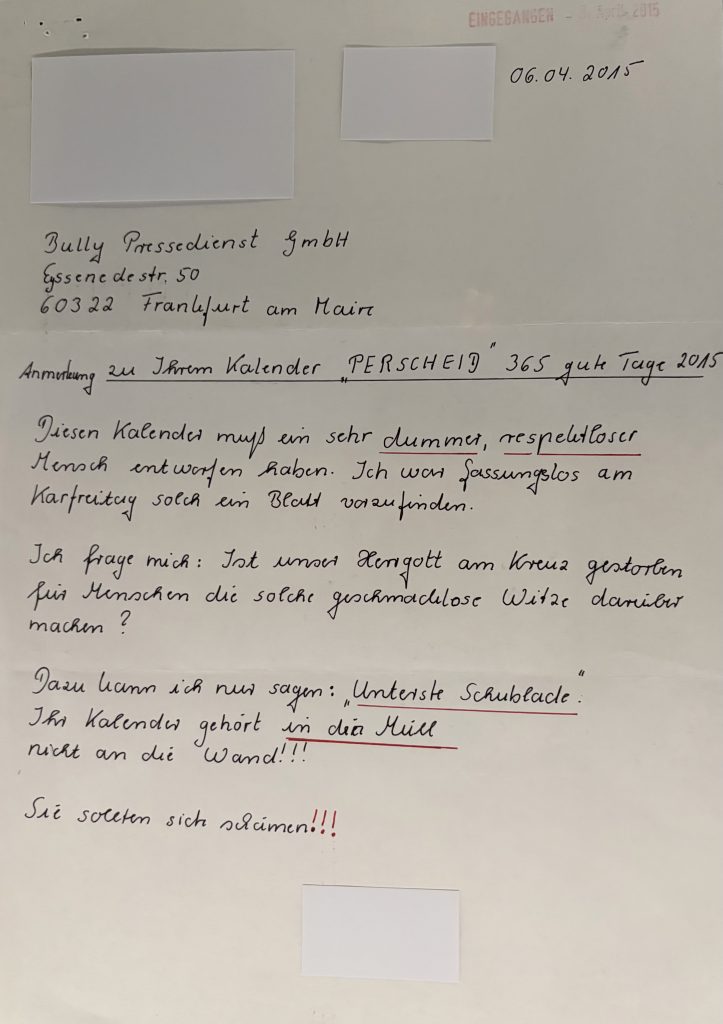 EINGEGANGEN - April 2015
06.04.2015
Bully Pressedienst GmbH
Eyssenedestr. 50
60322 Frankfurt am Main
Anmerkung zu Ihrem Kalender „PERSCHEID" 365 gute Tage 2015
Diesen Kalender muß ein sehr dummer, respektloser
Mensch entworfen haben. Ich war fassungslos am
Karfreitag solch ein Blatt vorzufinden.
Ich frage mich: Ist unser Herrgott am Kreuz gestorben
für Menschen die solche geschmacklose Witze darüber
machen?
Dazu kann ich nur sagen: „Unterste Schublade".
Ihr Kalender gehört in den Müll
nicht an die Wand!!!
Sie sollten sich schämen!!!